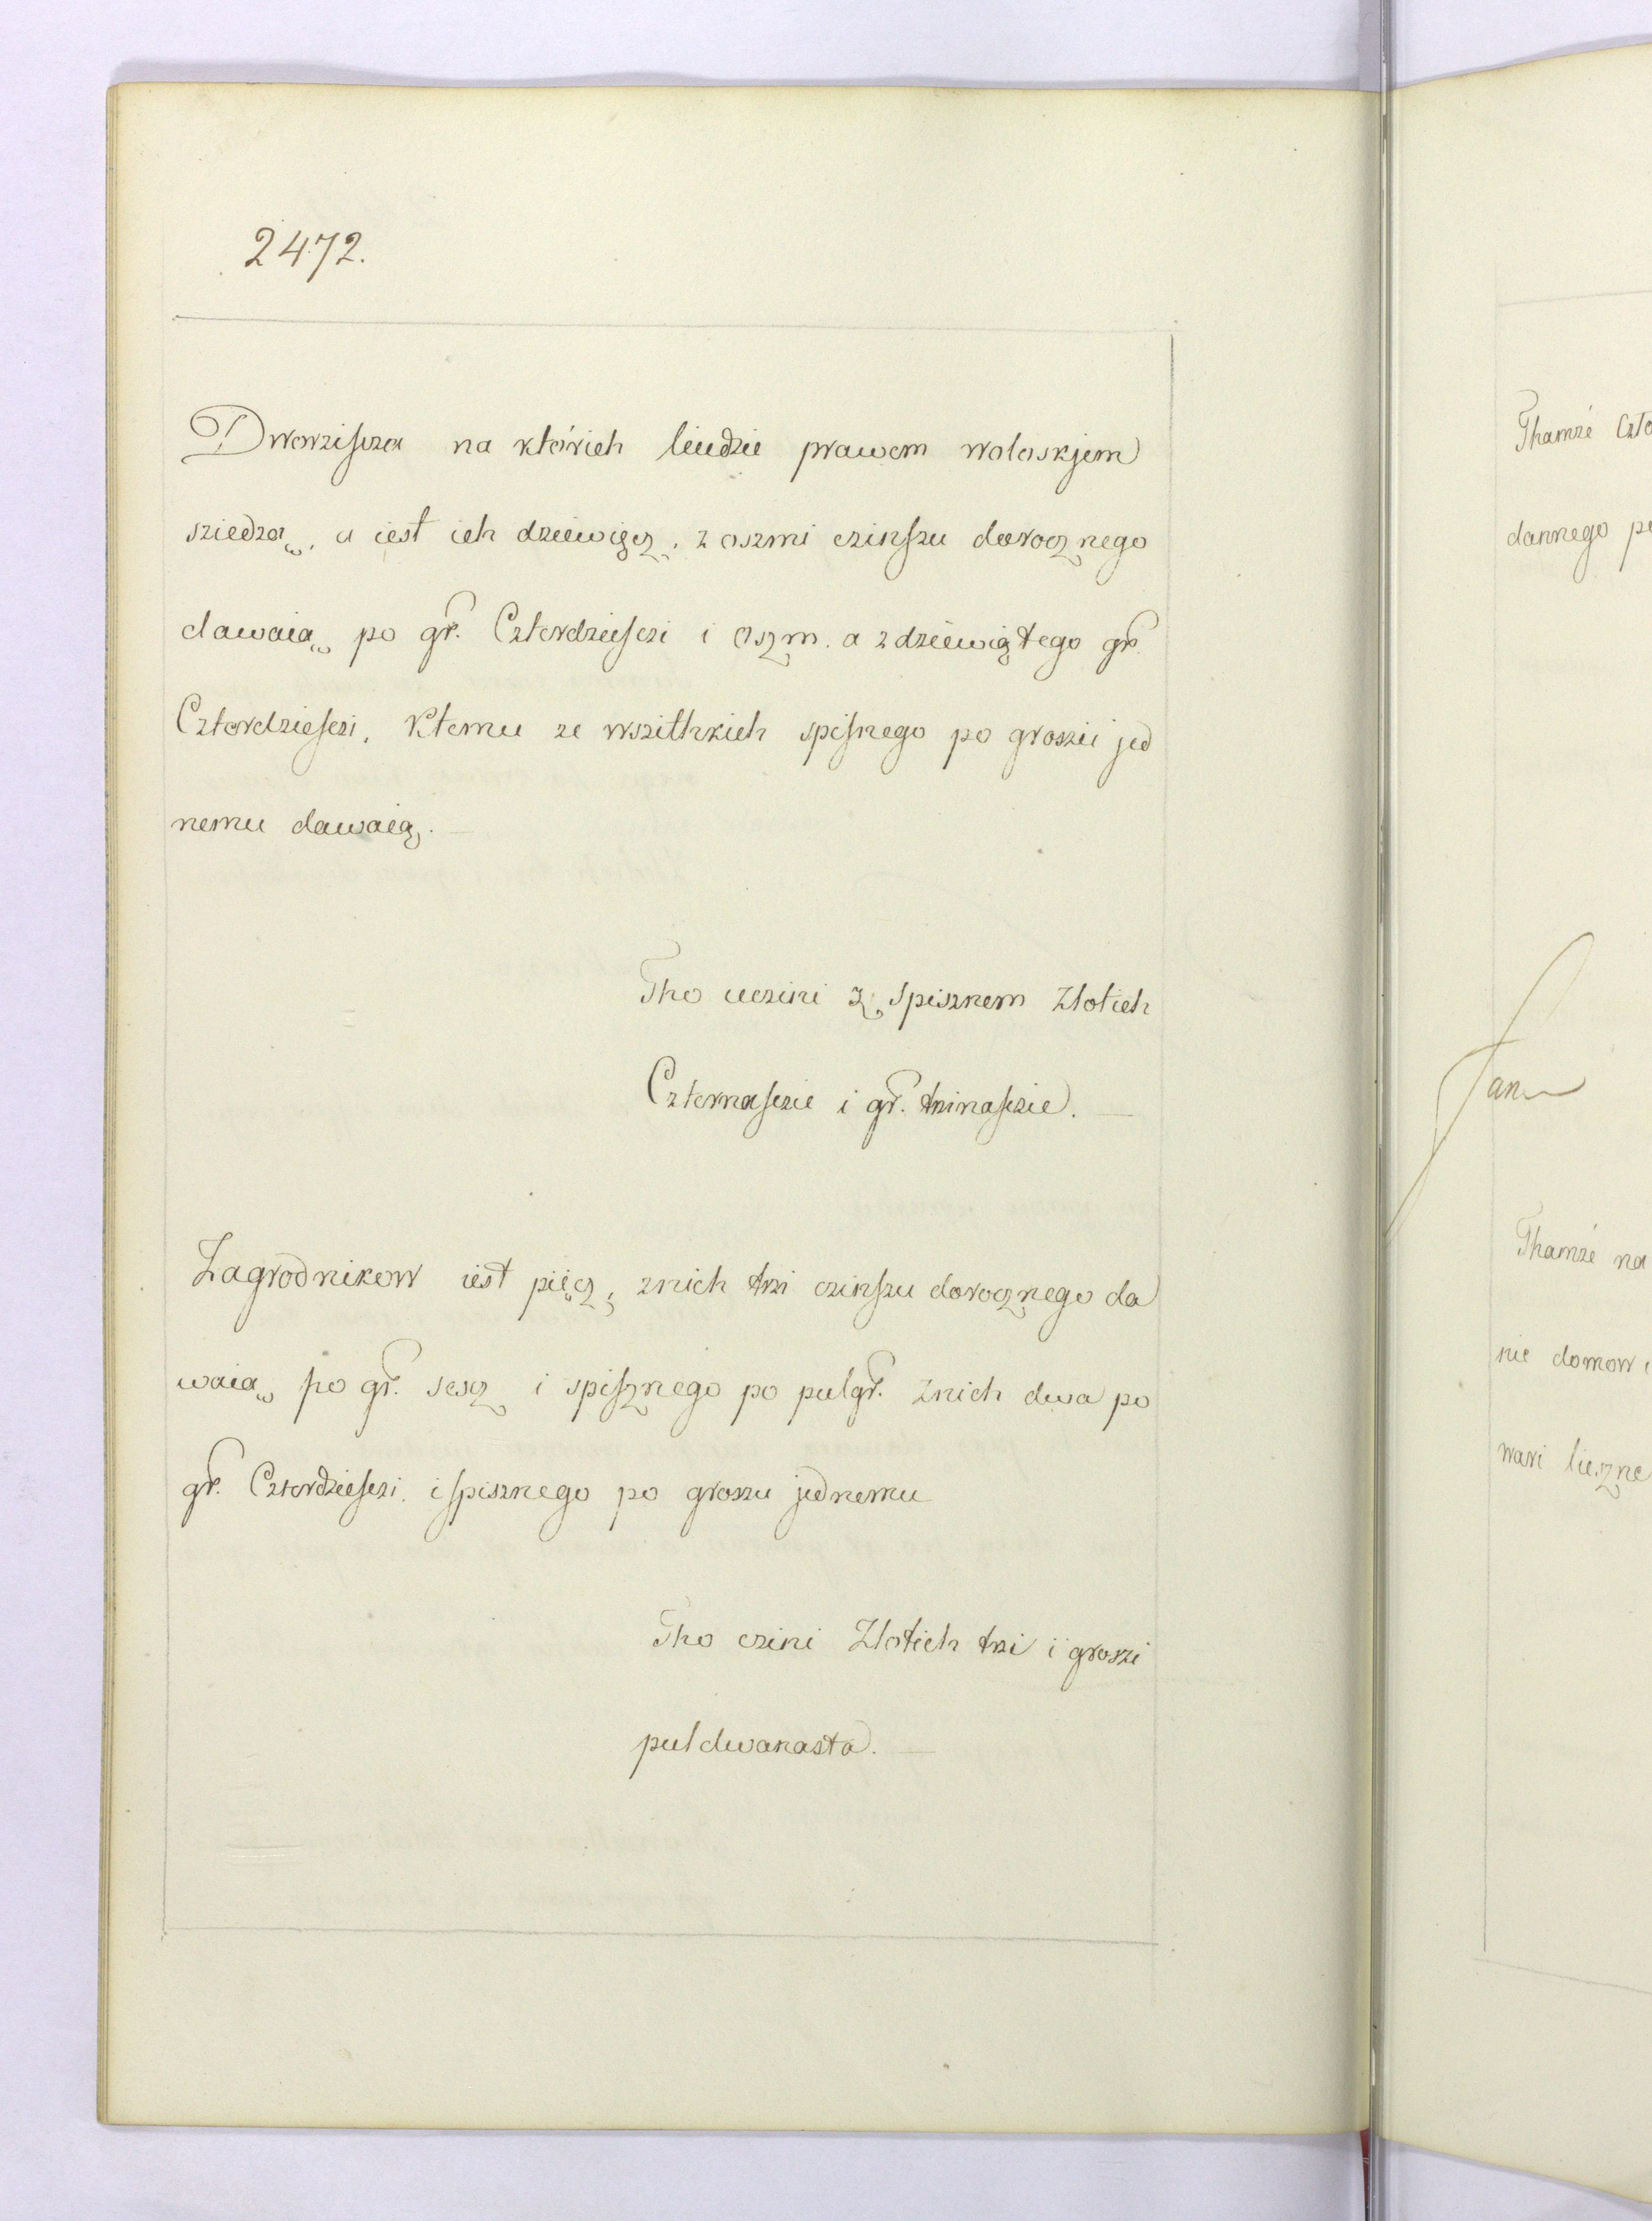 2472.
Dworzisza na których liudzie prawem woloskjem
sziedzą, a iest ich dziewięcz, z oszmi czinszu dorocznego
dawaią po gr. Czterdziesczi i oszm. a z dziewiątego gr.
Czterdziesczi. Ktemu ze wszithkich spisnego po groszu jed
nemu dawaią.
Tho uczini z spisznem Zlotich
Czternascie i gr. trzinascie.
Zagrodnikow iest pięcz, znich trzi czinszu dorocznego da
waią po gr. sescz i spisznego po pulgr. Znich dwa po
gr. Czterdziesczi. i spisznego po groszu jednemu
Tho czini Zlotich trzi i groszi
puldwanasta.
Thamże
dannego
Jan
Thamże na
nie domow